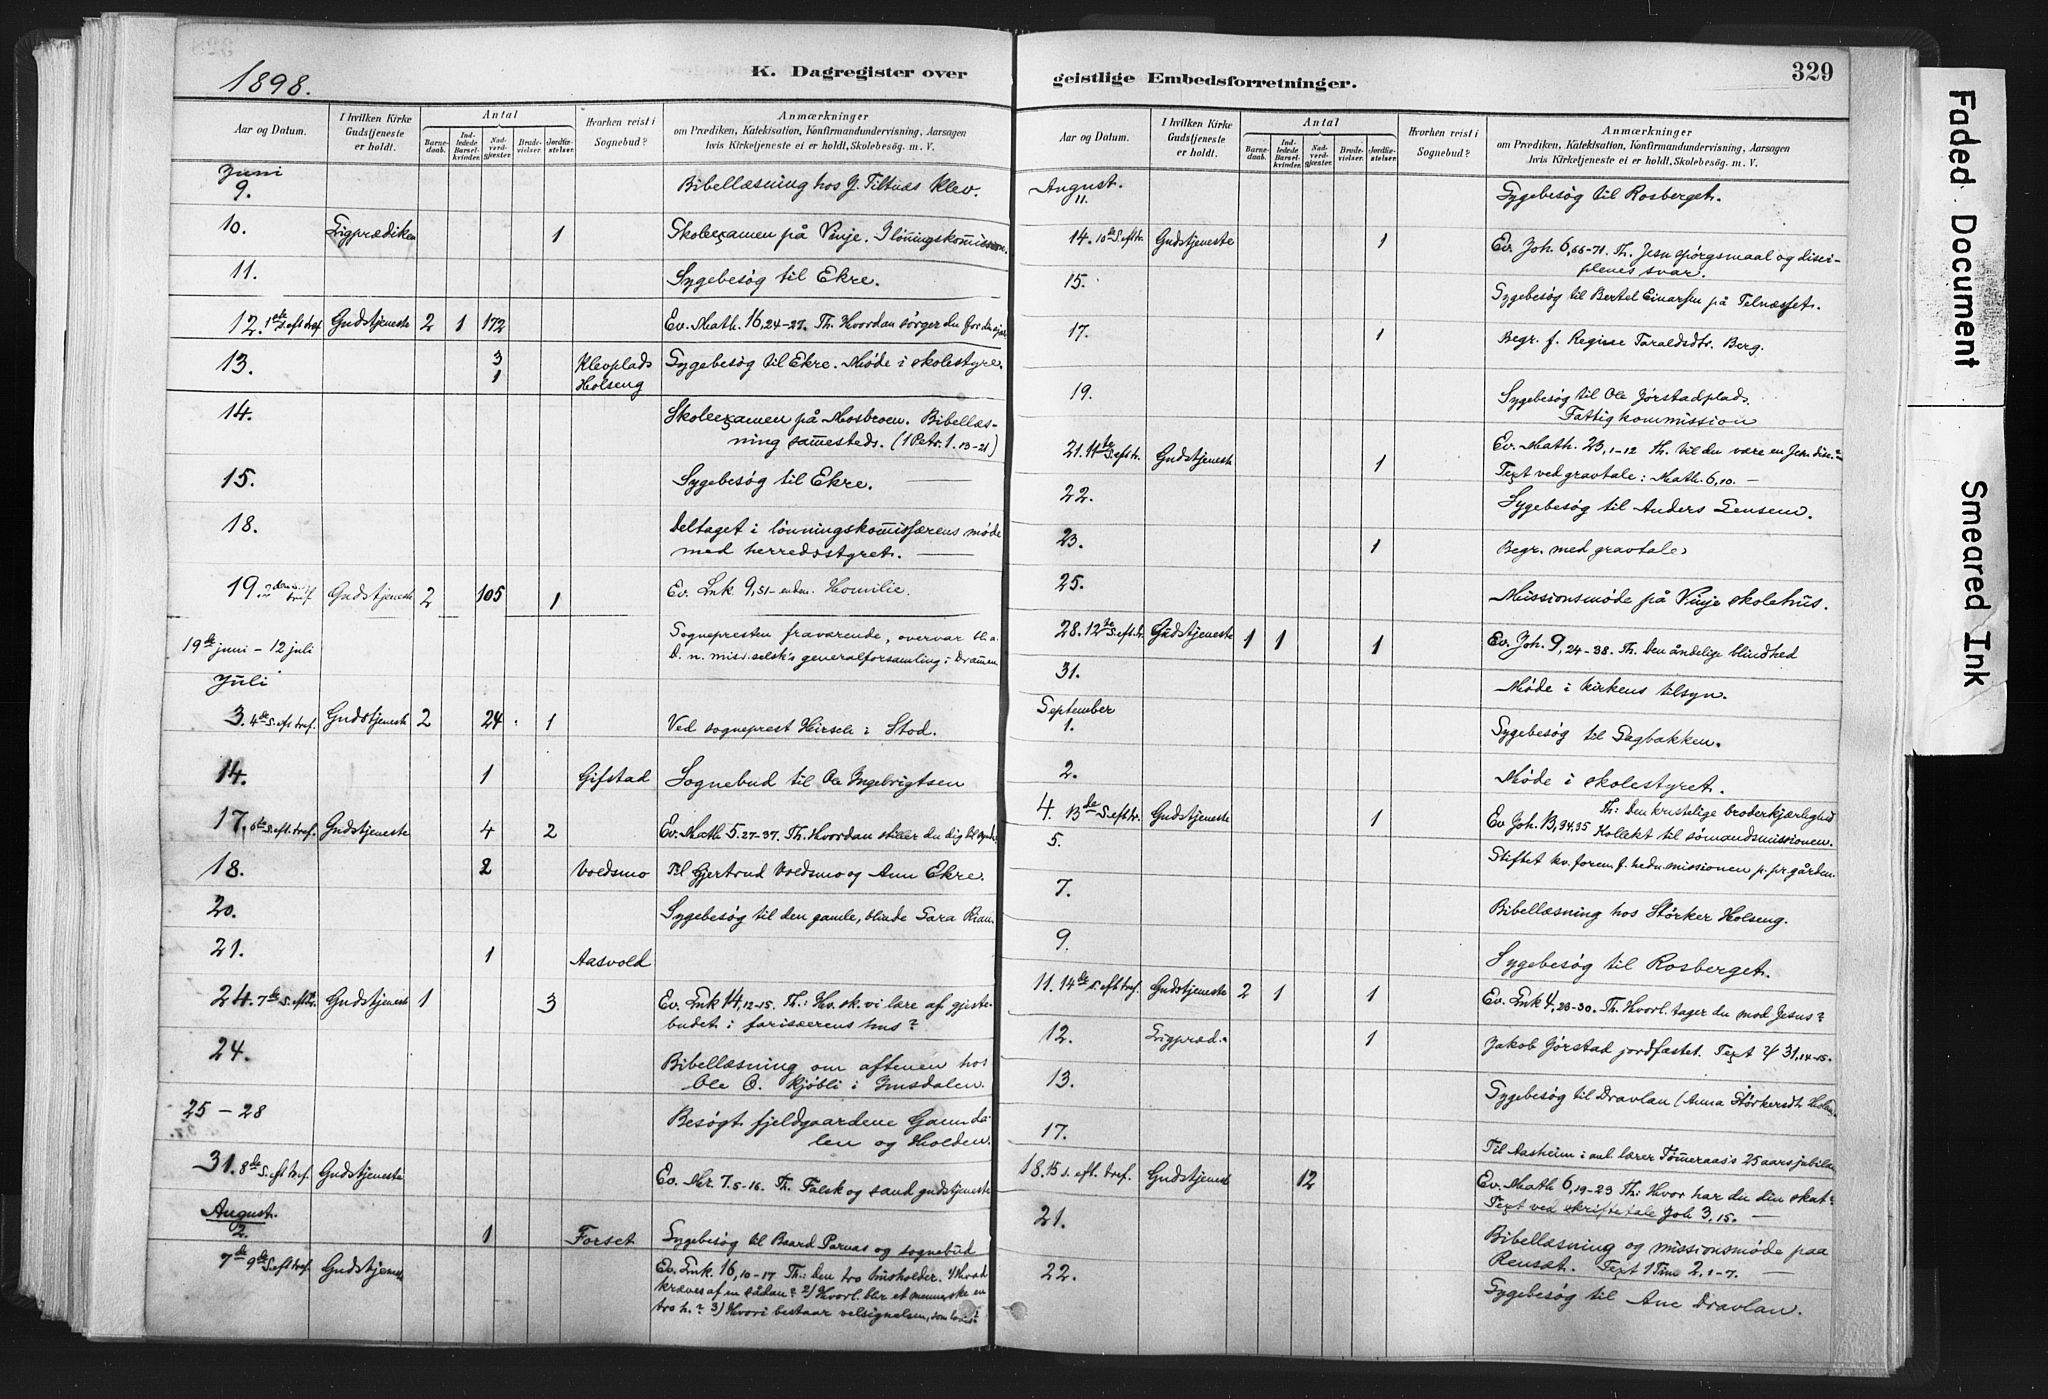 1898.
K. Dagregister over
Aar og Datum.
I hvilken Kirke Gudstjeneste er holdt.
Antal
Barne-daab.
Ind-ledede Barsel-kvinder.
Nad-verd-gjester.
Brude-vielser.
Jordfæ-stelser.
Hvorhen reist i Sognebud?
Anmærkninger
om Prædiken, Katekisation, Konfirmandundervisning, Aarsagen
hvis Kirketjeneste ei er holdt, Skolebesög. m. V.
Juni
9. Bibellæsning hos J. Tiltnæs Klev.
10. Ligprædiken 1 Skoleexamen på Vinje. I lönningskommission.
11. Sygebesøg til Ekre.
12. 1ste S. eft tref Gudstjeneste 2 1 172 Ev. Math. 16,24-27. Th. Hvordan sörger du for din sjæl
13. 3 Klevplads Sygebesøg til Ekre. Møde i skolestyre.
1 Holseng
14. Skoleexamen på Mosbroen. Bibellæs-
ning sammesteds. (1 Petr. 1. 13-21)
15. Sygebesøg til Ekre.
18. Deltaget i lönningskommissærens møde
med herredsstyret.
19. 2den S. tref. Gudstjeneste 2 105 1 Ev. Luk 9,51-enden. Homilie.
19de juni - 12 juli Sognepresten fraværende, overvar bl. a.
D. n. mis. selsk's generalforsamling i Drammen
Juli
3. 4de S. eft tref. Gudstjeneste 2 24 1 Ved sogneprest Hirsch i Stod.
14. 1 Gifstad Sognebud til Ole Ingebrigtsen
17. 6te S. eft. tref. Gudstjeneste 4 2 Ev. Math 5.27-37. Th. Hvordan stiller du dig til synden
18. 2 Voldsmo Til Gjertrud Voldsmo og Ane Ekre.
20. Sygebesøg til den gamle, blinde Sara
21. 1 Aasvold
24. 7de S. eft tr. Gudstjeneste 1 3 Ev. Luk 14,12-15. Th: Hv. sk. vi lære af gjeste-
budet i farisæerens hus?
24. Bibellæsning om aftenen hos
Ole O. Kjøbli i Imsdalen.
25 - 28 Besøgt fjeldgaardene Gaundа-
len og Holden.
31. 8de S. eft tref. Gudstjeneste Ev. Mr. 7.5-16. Th. Falsk og sand gudstjeneste
August.
2. 1 Forset Sygebesøg til Baard Parnas og sognebud
7de 9de S. eft tref. Gudstjeneste Ev. Luk. 16,10-17 Th: Den tro husholder. 1) Hvad
kræves af en sådan? 2) Hvorl. blir et menneske en
tro h.? 3) Hvori bestaar velsignelsen, som
geistlige Embedsforretninger.
329
Aar og Datum.
I hvilken Kirke Gudstjeneste er holdt.
Antal
Barne-daab.
Ind-ledede Barsel-kvinder.
Nad-verd-gjester.
Brude-vielser.
Jordfæ-stelser.
Hvorhen reist i Sognebud?
Anmærkninger
om Prædiken, Katekisation, Konfirmandundervisning, Aarsagen
hvis Kirketjeneste ei er holdt, Skolebesög. m. V.
August.
11. Sygebesøg til Rosberget.
14. 10de S. eft tr. Gudstjeneste 1 Ev. Joh. 6,66-71. Th. Jesu spörgsmaal og disci-
plenes svar.
15. Sygebesøg til Bertel Einarsen på Telnæsset.
17. 1 Begr. f. Regine Taraldsdtr. Berg.
19. Sygebesøg til Ole Jørstadplads.
Fattigkommission
21. 11te S. eft tr. Gudstjeneste 1 Ev. Math. 23,1-12 Th. Vil du være en Jesu disc.?
Text ved gravtale: Math. 6,10.
22. Sygebesøg til Anders Lensem.
23. 1 Begr. med gravtale
25. Missionsmøde på Vinje skolehus.
28. 12te S. eft. tr. Gudstjeneste 1 1 1 Ev. Joh. 9,24-38. Th. Den åndelige blindhed
31. Møde i kirkens tilsyn.
September
1. Sygebesøg til Bagbakken.
2. Møde i skolestyret.
4. 13de S. eft tr. Gudstjeneste 1 Th: Den kristelige broderkjærlighed
Ev. Joh. 13,34.35 Kollekt til sömandsmissionen.
5. Stiftet kv. foren. f. hedn. missionen p. pr. gården.
7. Bibellæsning hos Störker Holseng.
9. Sygebesøg til Rosberget.
11. 14de S. eft tref. Gudstjeneste 2 1 1 Ev. Luk 4,23-30. Th. Hvorl. tager du mod Jesus?
12. Ligpræd. 1 Jakob Jørstad jordfæstet. Text ψ 31,14-15.
13. Sygebesøg til Dravlan (Anna Störkersdtr.
17. Til Aasheim i anl. lærer Tømmeraas's 25 aarsjubilæum
18. 15 S. eft. tref. Gudstjeneste 12 Ev. Math 6,19-23 Th. Hvor har du din skat?
Text ved skriftetale Joh 3,15.
21. Bibellæsning og missionsmøde paa
Renset. Text 1 Tim 2,1-7.
22. Sygebesøg til Ane Dravlan.
Faded Document
Smeared Ink